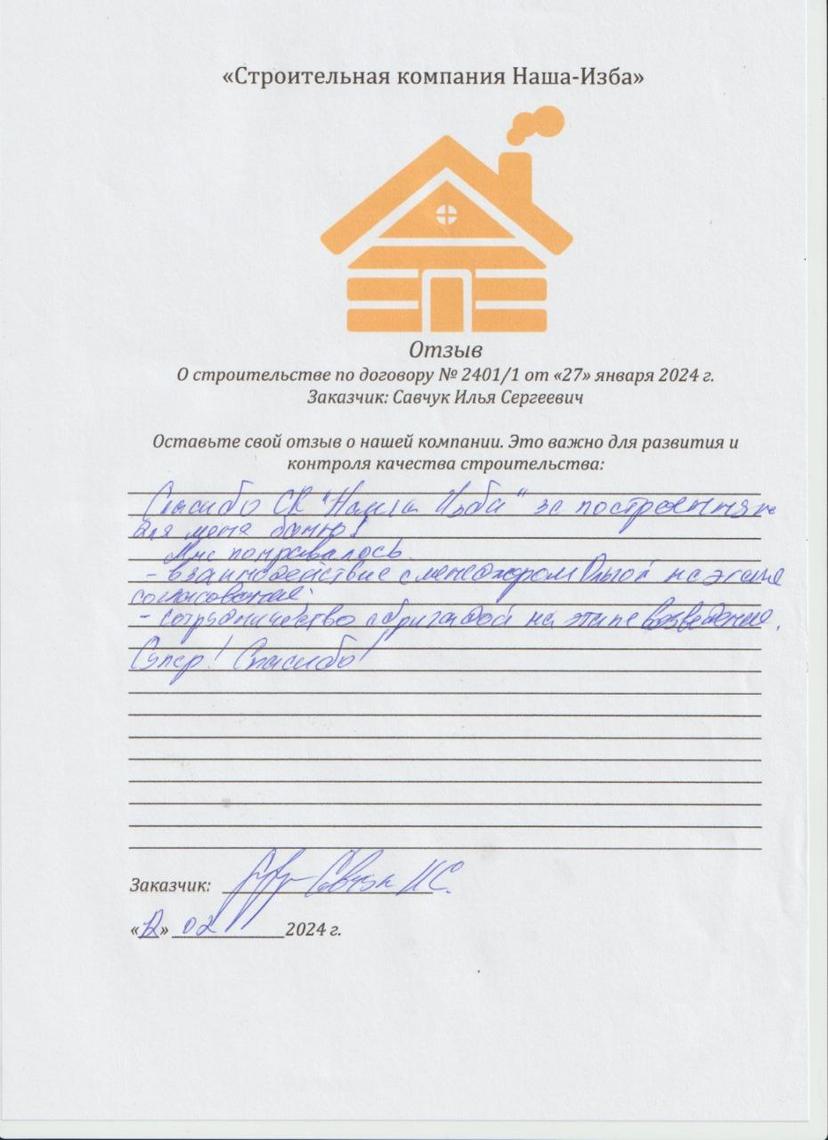 «Строительная компания Наша-Изба»
Отзыв
О строительстве по договору № 2401/1 от «27» января 2024 г.
Заказчик: Савчук Илья Сергеевич
Оставьте свой отзыв о нашей компании. Это важно для развития и
контроля качества строительства:
Спасибо СК "Наша Изба" за построенную
для меня баню!
Мне понравилось
- взаимодействие с менеджером Ольгой на этапе
согласования.
- сотрудничество с бригадой на этапе возведения.
Супер! Спасибо!
Заказчик: Савчук И.С.
«12» 02 2024 г.